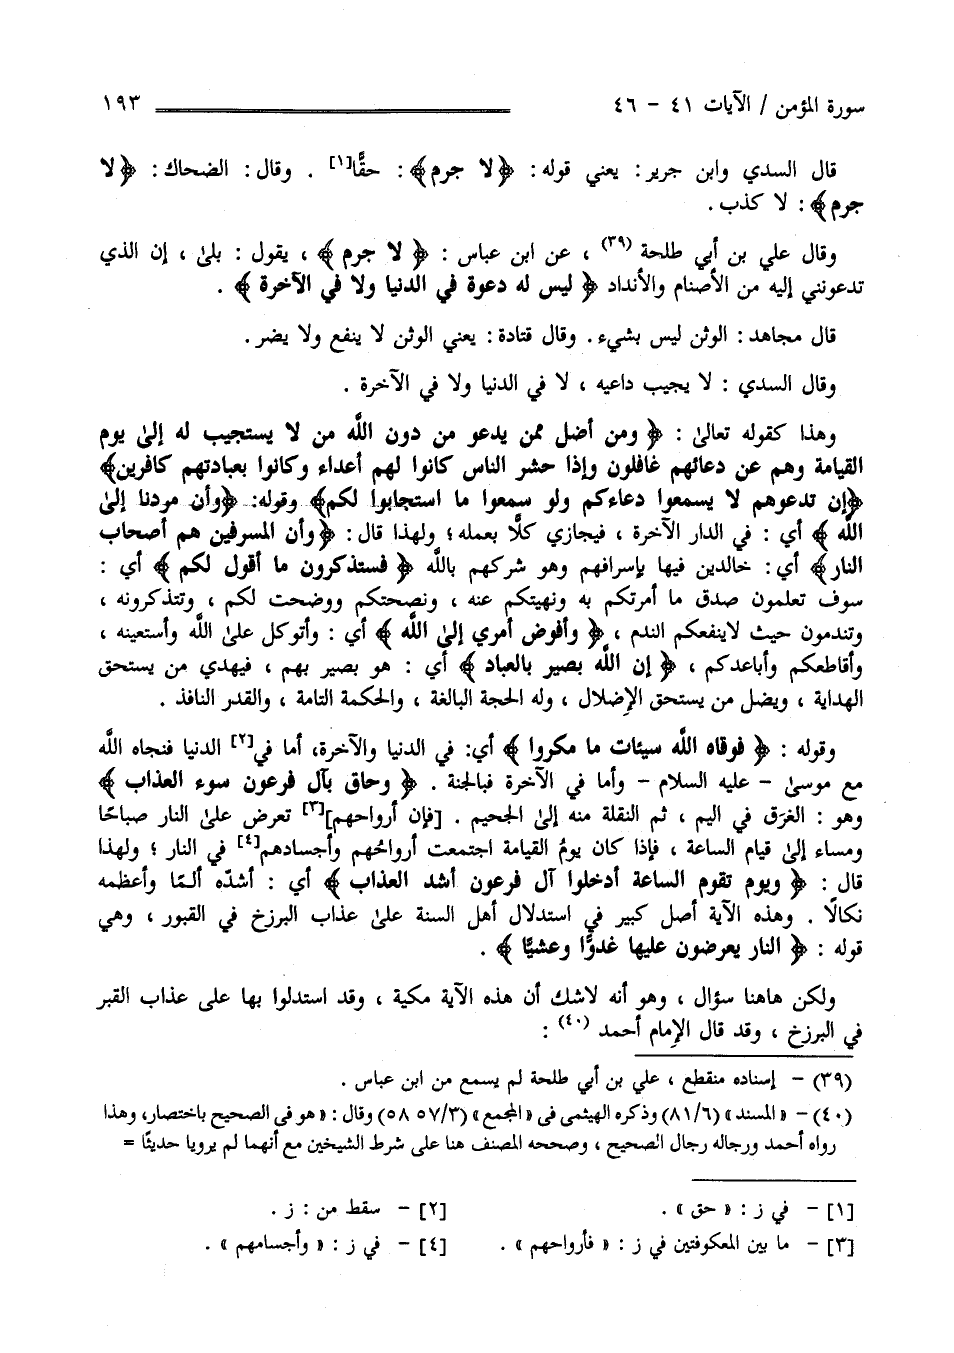 سورة المؤمن / الآيات ٤١ - ٤٦ ١٩٣
قال السدي وابن جرير: يعني قوله: ﴿لا جرم﴾: حقًّا[١] . وقال: الضحاك: ﴿لا
جرم﴾: لا كذب.
وقال علي بن أبي طلحة (٣٩) ، عن ابن عباس : ﴿ لا جرم ﴾ ، يقول : بلىٰ ، إن الذي
تدعونني إليه من الأصنام والأنداد ﴿ ليس له دعوة في الدنيا ولا في الآخرة ﴾ .
قال مجاهد: الوثن ليس بشيء. وقال قتادة: يعني الوثن لا ينفع ولا يضر.
وقال السدي : لا يجيب داعيه ، لا في الدنيا ولا في الآخرة .
وهذا كقوله تعالىٰ : ﴿ ومن أضل ممن يدعو من دون اللَّه من لا يستجيب له إلىٰ يوم
القيامة وهم عن دعائهم غافلون وإذا حشر الناس كانوا لهم أعداء وكانوا بعبادتهم كافرين﴾
﴿إن تدعوهم لا يسمعوا دعاءكم ولو سمعوا ما استجابوا لكم﴾ وقوله: ﴿وأن مردنا إلىٰ
اللَّه ﴾ أي : في الدار الآخرة ، فيجازي كلًّا بعمله؛ ولهذا قال: ﴿وأن المسرفين هم أصحاب
النار﴾ أي: خالدين فيها بإسرافهم وهو شركهم باللَّه ﴿ فستذكرون ما أقول لكم ﴾ أي :
سوف تعلمون صدق ما أمرتكم به ونهيتكم عنه ، ونصحتكم ووضحت لكم ، وتتذكرونه ،
وتندمون حيث لاينفعكم الندم ، ﴿ وأفوض أمري إلىٰ اللَّه ﴾ أي : وأتوكل علىٰ اللَّه وأستعينه ،
وأقاطعكم وأباعدكم ، ﴿ إن اللَّه بصير بالعباد ﴾ أي : هو بصير بهم ، فيهدي من يستحق
الهداية ، ويضل من يستحق الإضلال ، وله الحجة البالغة ، والحكمة التامة ، والقدر النافذ .
وقوله : ﴿ فوقاه اللَّه سيئات ما مكروا ﴾ أي: في الدنيا والآخرة، أما في[٢] الدنيا فنجاه اللَّه
مع موسىٰ - عليه السلام - وأما في الآخرة فبالجنة . ﴿ وحاق بآل فرعون سوء العذاب ﴾
وهو : الغرَق في اليم ، ثم النقلة منه إلىٰ الجحيم . [فإن أرواحهم][٣] تعرض علىٰ النار صباحًا
ومساء إلىٰ قيام الساعة ، فإذا كان يومُ القيامة اجتمعت أرواحُهم وأجسادهم[٤] في النار ؛ ولهذا
قال : ﴿ ويوم تقوم الساعة أدخلوا آل فرعون أشد العذاب ﴾ أي : أشدّه ألمًا وأعظمه
نكالًا . وهذه الآية أصل كبير في استدلال أهل السنة علىٰ عذاب البرزخ في القبور ، وهي
قوله : ﴿ النار يعرضون عليها غدوًّا وعشيًّا ﴾ .
ولكن هاهنا سؤال ، وهو أنه لاشك أن هذه الآية مكية ، وقد استدلوا بها على عذاب القبر
في البرزخ ، وقد قال الإمام أحمد (٤٠) :
(٣٩) - إسناده منقطع ، علي بن أبي طلحة لم يسمع من ابن عباس .
(٤٠) - « المسند » (٨١/٦) وذكره الهيثمى فى « المجمع » (٥٧/٣ ٥٨) وقال : « هو فى الصحيح باختصار، وهذا
رواه أحمد ورجاله رجال الصحيح ، وصححه المصنف هنا على شرط الشيخين مع أنهما لم يرويا حديثًا =
[١] - في ز : « حق » . [٢] - سقط من : ز .
[٣] - ما بين المعكوفتين في ز : « فأرواحهم » . [٤] - في ز : « وأجسامهم » .